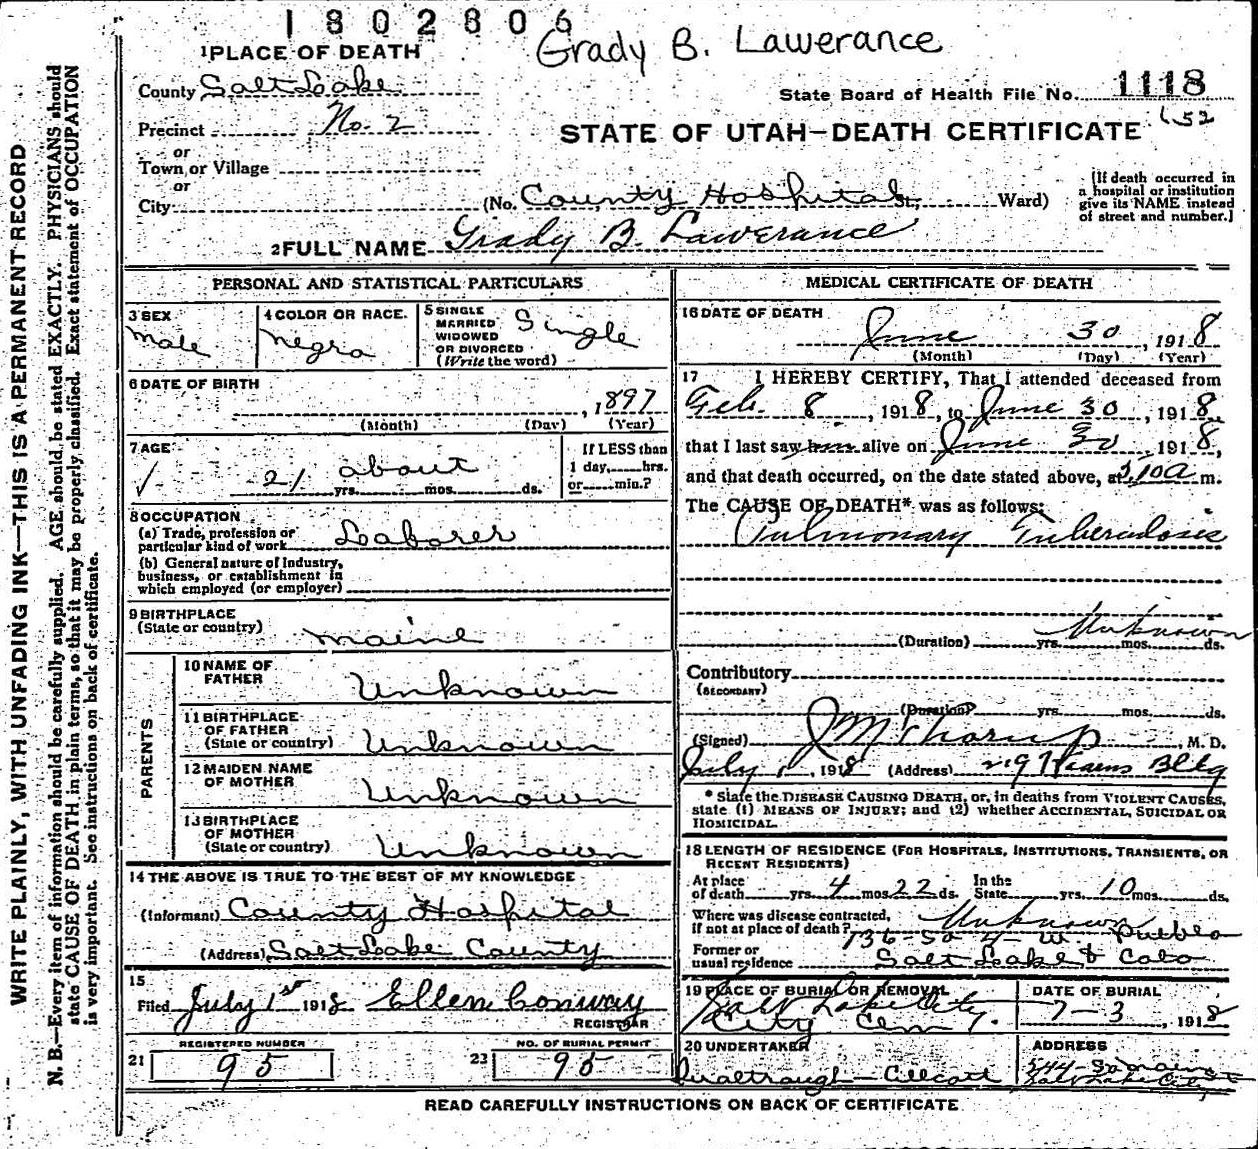 1802806
Grady B. Lawerance
1 PLACE OF DEATH
County Salt Lake
State Board of Health File No. 1118
Precinct No. 2
652
STATE OF UTAH—DEATH CERTIFICATE
or
Town or Village
or
City (No. County Hospital St. Ward)
(If death occurred in a hospital or institution give its NAME instead of street and number.]
2 FULL NAME Grady B. Lawerance
PERSONAL AND STATISTICAL PARTICULARS
3 SEX
Male
4 COLOR OR RACE.
negro
5 SINGLE MARRIED WIDOWED OR DIVORCED (Write the word)
Single
6 DATE OF BIRTH
, 1897
(Month) (Day) (Year)
7 AGE
21 about
yrs. mos. ds.
If LESS than 1 day, hrs. or min.?
8 OCCUPATION
(a) Trade, profession or particular kind of work Laborer
(b) General nature of Industry, business, or establishment in which employed (or employer)
9 BIRTHPLACE
(State or country) Maine
PARENTS
10 NAME OF FATHER Unknown
11 BIRTHPLACE OF FATHER (State or country) Unknown
12 MAIDEN NAME OF MOTHER Unknown
13 BIRTHPLACE OF MOTHER (State or country) Unknown
14 THE ABOVE IS TRUE TO THE BEST OF MY KNOWLEDGE
(Informant) County Hospital
(Address) Salt Lake County
15
Filed July 1st 1918 Ellen Conway
REGISTRAR
REGISTERED NUMBER
21 95
NO. OF BURIAL PERMIT
23 95
MEDICAL CERTIFICATE OF DEATH
16 DATE OF DEATH
June 30, 1918
(Month) (Day) (Year)
17 I HEREBY CERTIFY, That I attended deceased from
Feb. 8, 1918, to June 30, 1918,
that I last saw him alive on June 30 1918,
and that death occurred, on the date stated above, at 3:10a m.
The CAUSE OF DEATH* was as follows:
Pulmonary Tuberculosis
Unknown
(Duration) yrs. mos. ds.
Contributory
(SECONDARY)
(Duration) yrs. mos. ds.
(Signed) J M Thorup, M. D.
July 1, 1918 (Address) 219 Kearns Bldg
* State the DISEASE CAUSING DEATH, or, in deaths from VIOLENT CAUSES, state (1) MEANS OF INJURY; and (2) whether ACCIDENTAL, SUICIDAL OR HOMICIDAL.
18 LENGTH OF RESIDENCE (FOR HOSPITALS, INSTITUTIONS, TRANSIENTS, OR RECENT RESIDENTS)
At place of death yrs. 4 mos. 22 ds. In the State yrs. 10 mos. ds.
Where was disease contracted, if not at place of death? Unknown
136-So 4-W. Pueblo
Former or usual residence Salt Lake & Colo
19 PLACE OF BURIAL OR REMOVAL
Salt Lake City
City Cem.
DATE OF BURIAL
7-3, 1918
20 UNDERTAKER
ADDRESS
544-So Main St
Salt Lake City
READ CAREFULLY INSTRUCTIONS ON BACK OF CERTIFICATE
WRITE PLAINLY, WITH UNFADING INK—THIS IS A PERMANENT RECORD
N. B.—Every item of information should be carefully supplied. AGE should be stated EXACTLY. PHYSICIANS should
state CAUSE OF DEATH in plain terms, so that it may be properly classified. Exact statement of OCCUPATION
is very important. See instructions on back of certificate.